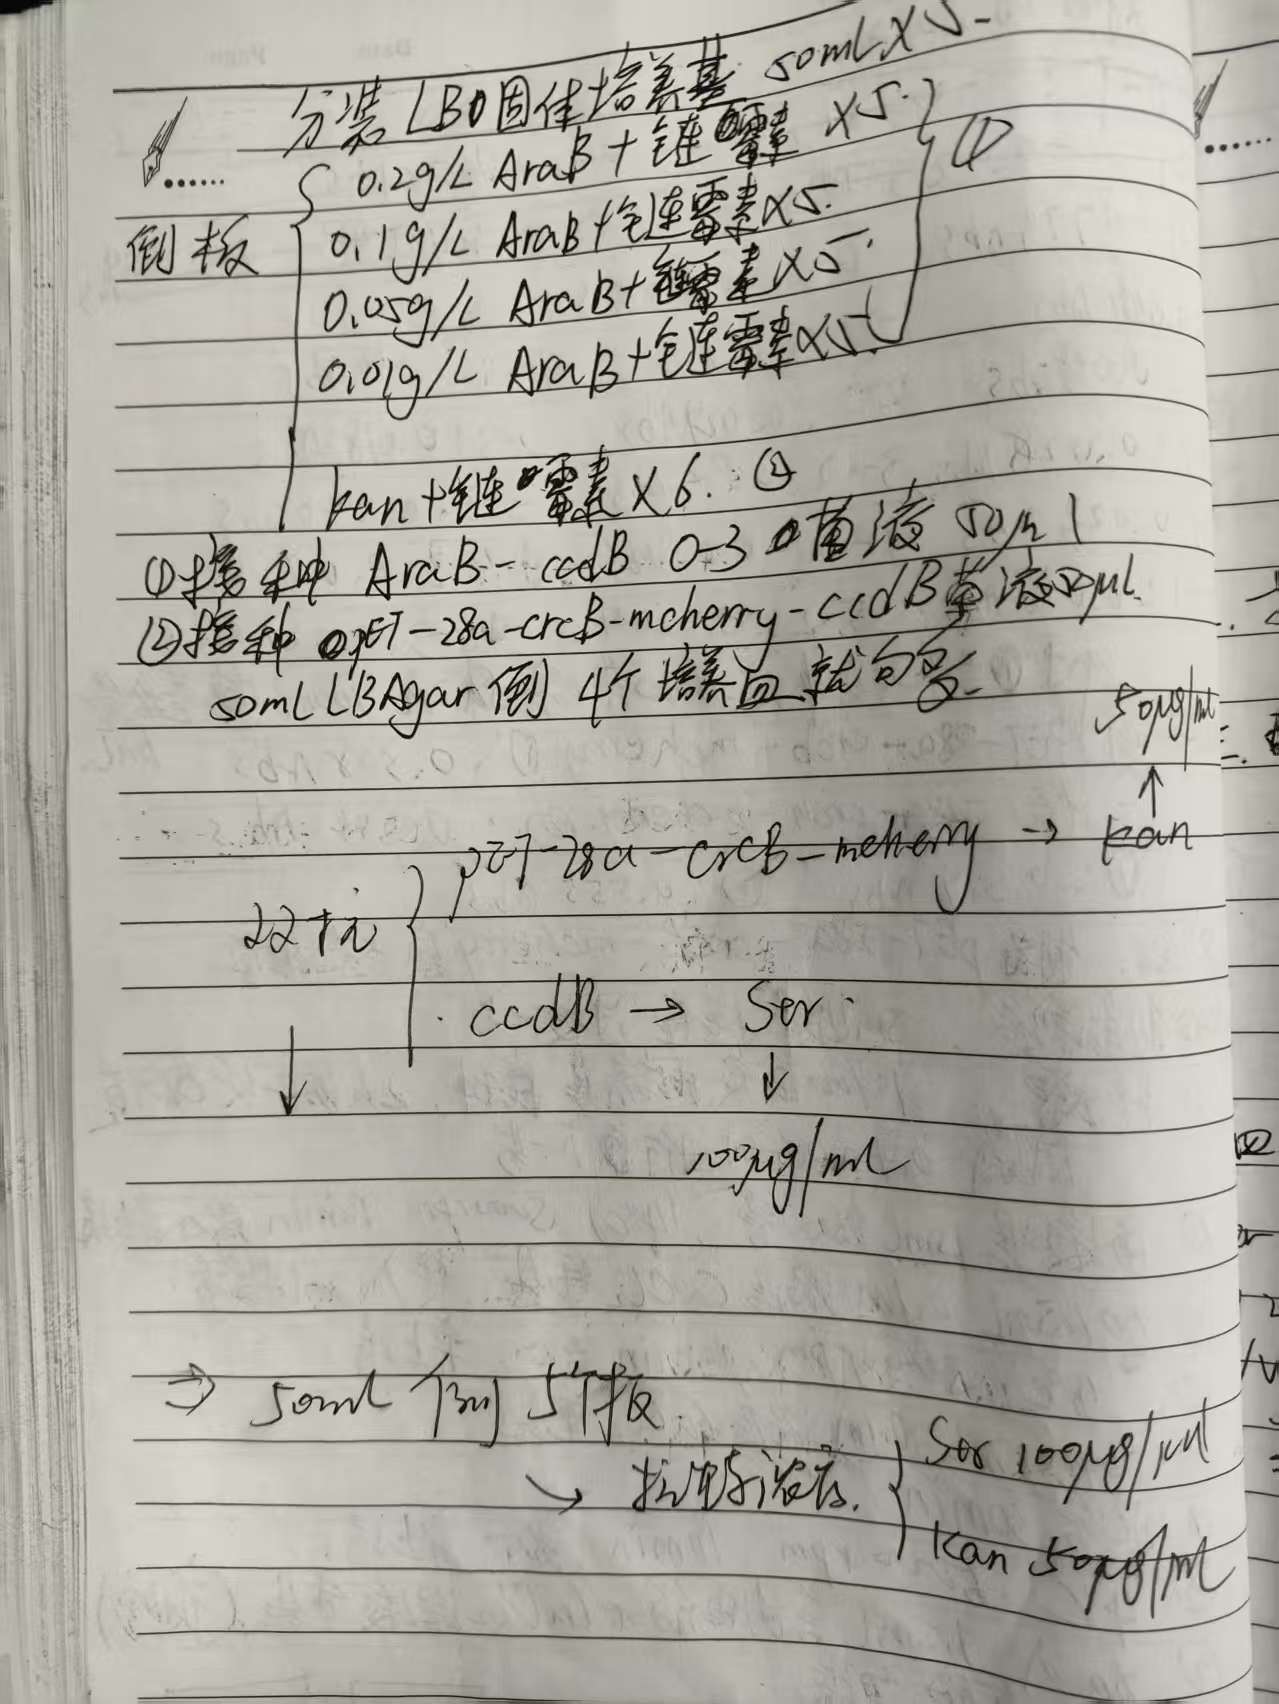 分装LB固体培养基 50mL×5.
倒板
0.2g/L AraB+链霉素 ×5. ①
0.1g/L AraB+链霉素×5.
0.05g/L AraB+链霉素×5.
0.01g/L AraB+链霉素×5.
kan+链霉素×6. ②
①接种 AraB-ccdB 0-3 菌液 50μl
②接种 pET-28a-crcB-mcherry-ccdB菌液 μL.
50mL LBAgar 倒 4个培养皿就够多.
50μg/ml
↑
pET-28a-crcB-mcherry → kan
22
ccdB → Ser.
↓ ↓
100μg/ml
⇒ 50ml 倒 5个板.
↘ 抗生素浓度. Ser 100μg/ml
Kan 50μg/ml